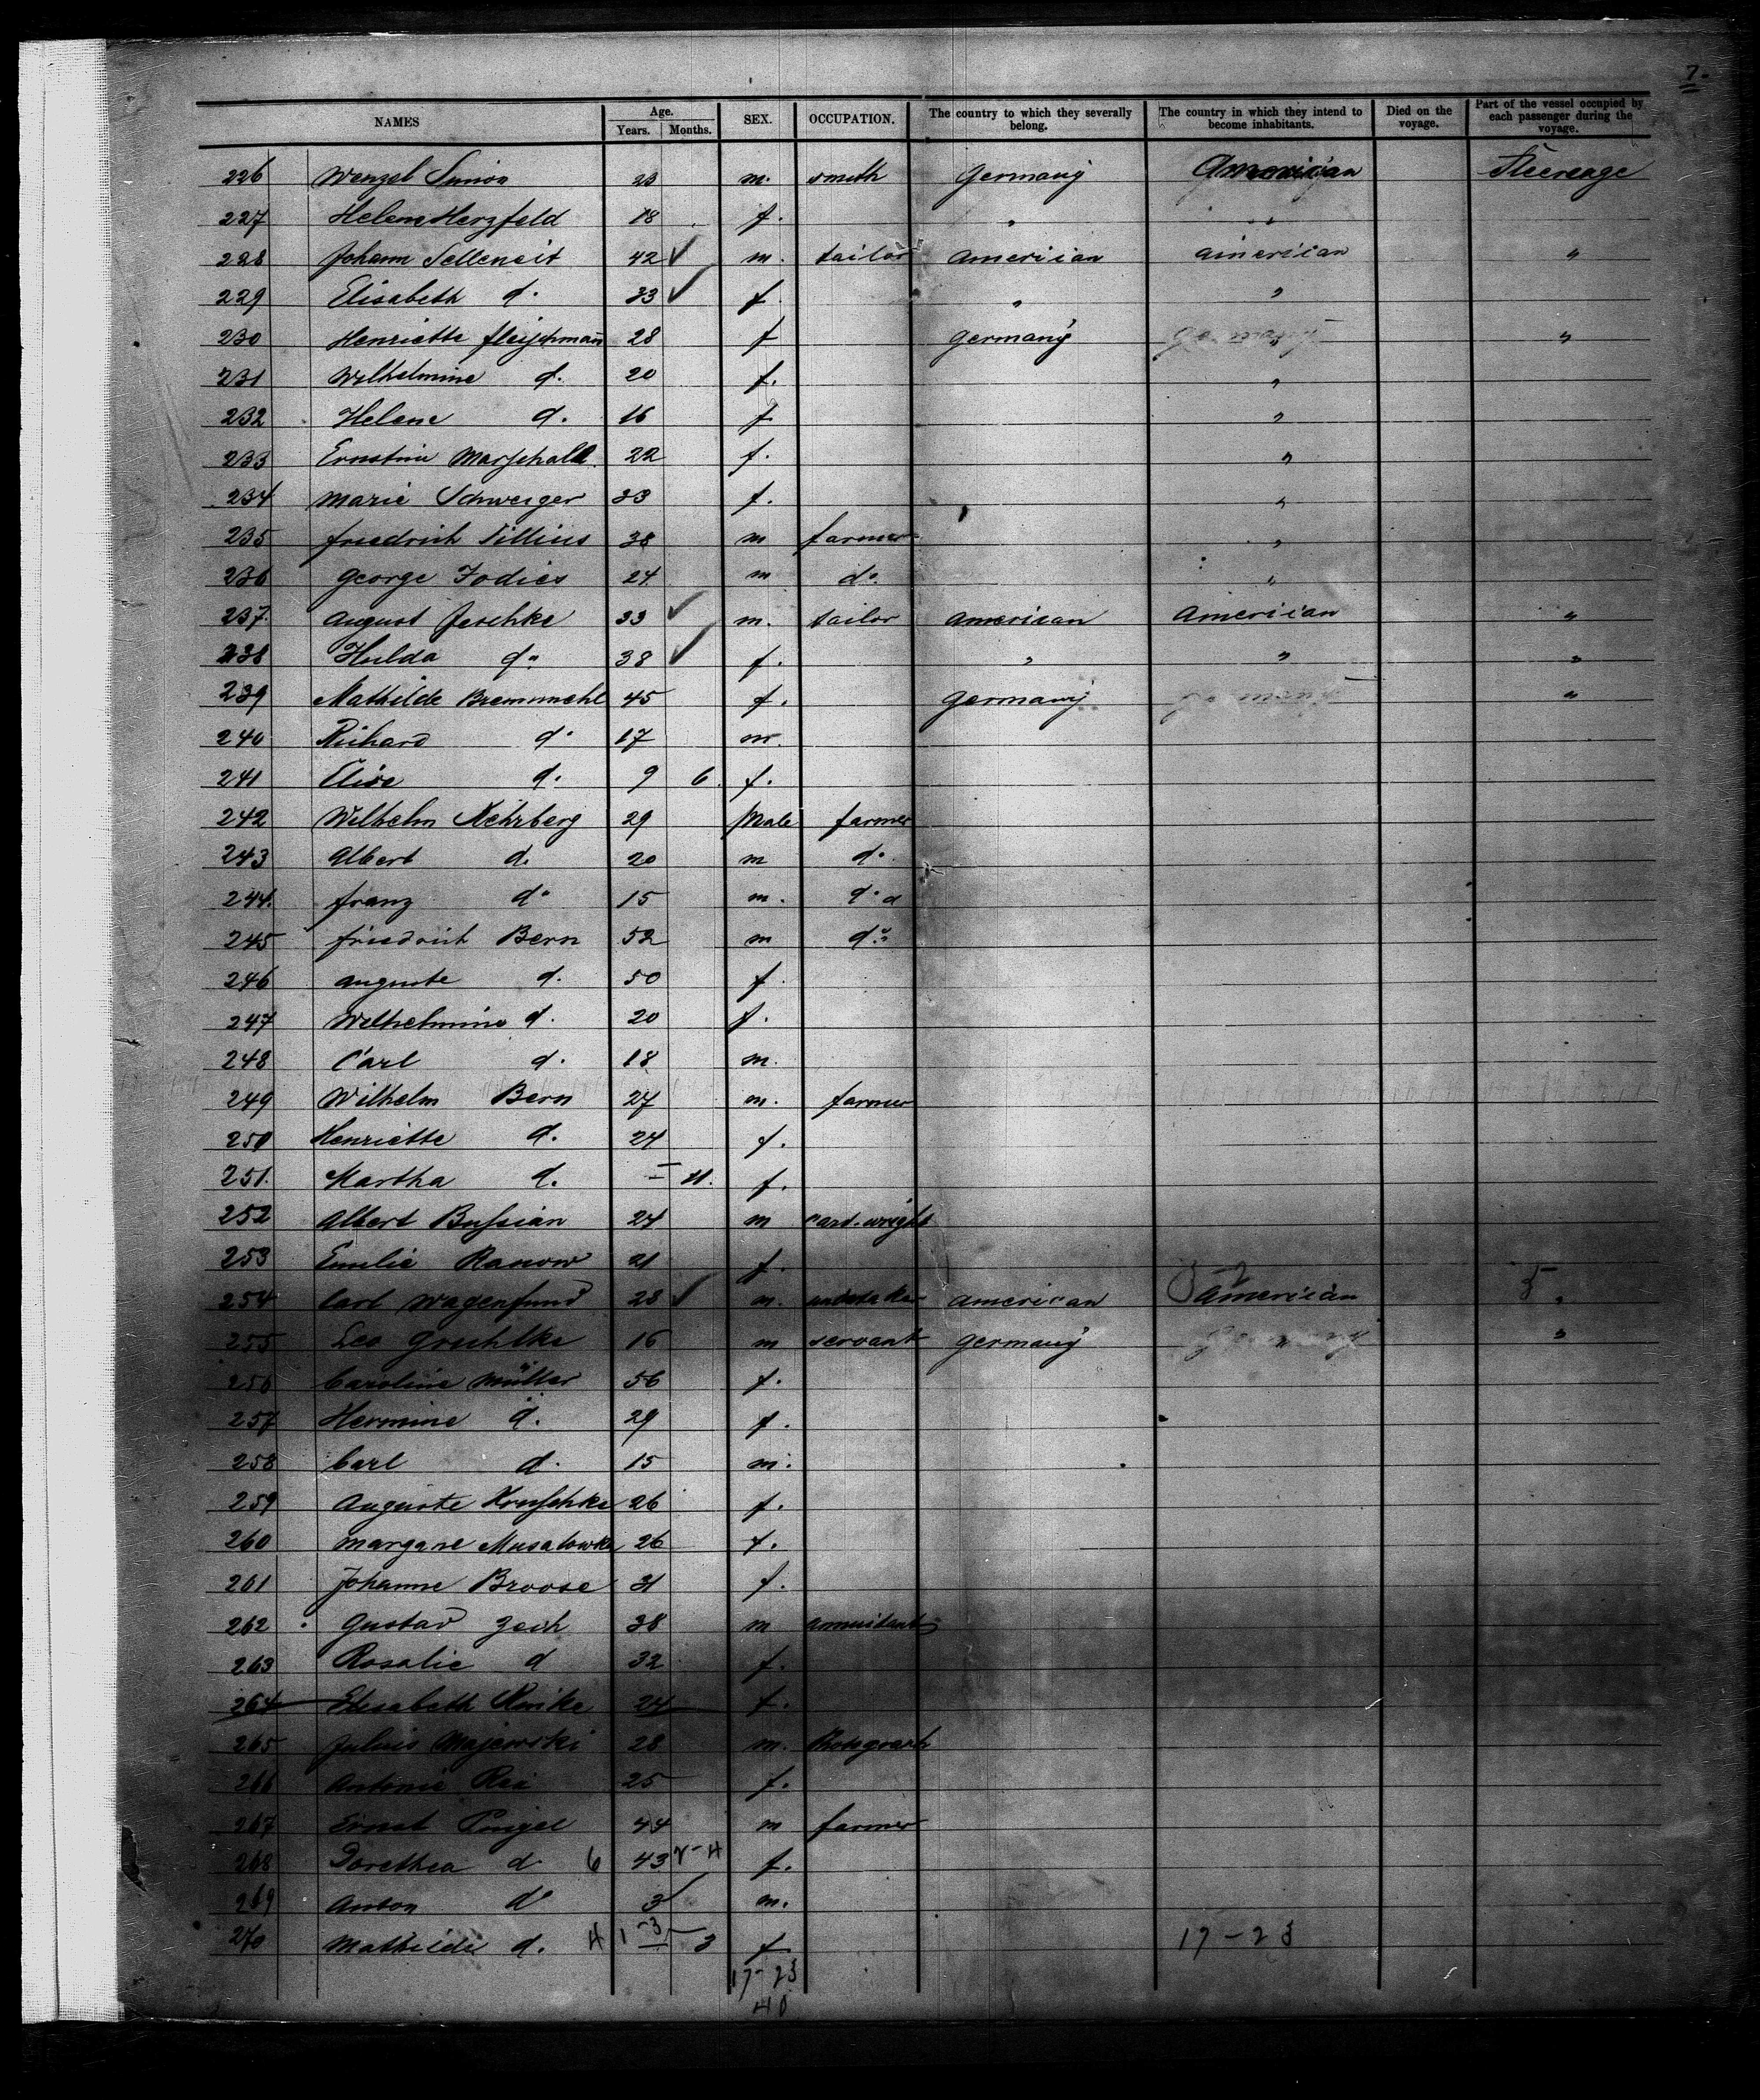 7.
NAMES Age. Years. Months. SEX. OCCUPATION. The country to which they severally belong. The country in which they intend to become inhabitants. Died on the voyage. Part of the vessel occupied by each passenger during the voyage.
226 Wenzel Simon 23 m. smith Germany American Steerage
227 Helene Herzfeld 18 f. " "
228 Johann Selleneit 42 ✓ m. tailor American american "
229 Elisabeth d. 33 ✓ f. " "
230 Henriette fleischmann 28 f germany germany "
231 Wilhelmine d. 20 f. "
232 Helene d. 16 f "
233 Ernstine Marschall 22 f. "
234 Marie Schweiger 23 f. "
235 friedrich Tillius 38 m farmer "
236 George Jodies 24 m do. "
237. August Jeschke 33 ✓ m. tailor american American "
238 Hulda do 38 ✓ f. " " "
239 Mathilde 45 f. germany germany "
240 Richard do 17 m.
241 Elise d. 9 6. f.
242 Wilhelm Nehrberg 29 Male farmer
243 Albert d. 20 m do.
244. franz do 15 m. do
245 friedrich Bern 52 m do
246 auguste d. 50 f
247 Wilhelmine d. 20 f.
248 Carl d. 18 m.
249 Wilhelm Bern 27 m. farmer
250 Henriette d. 24 f.
251. Martha d. - 11. f.
252 Albert Bussian 24 m cart-wright
253 Emilie Ranow 21 f.
254 Carl Wagenfund 28 ✓ m. american american "
255 Leo Gruhlke 16 m servant germany germany "
256 Caroline Müller 56 f.
257 Hermine d. 29 f.
258 Carl d. 15 m.
259 Auguste 26 f.
260 26 f.
261 Johanne Broose 31 f.
262 Gustav Zech 38 m
263 Rosalie d 32 f.
264 Elisabeth 24 f.
265 Julius Majewski 28 m.
266 Antonie 25 f.
267 Ernst Pingel 44 m farmer
268 Dorethea d. 6 43 f.
269 Anton do 3 m.
270 Mathilde d. 4 3 f 17-23
17-23
40